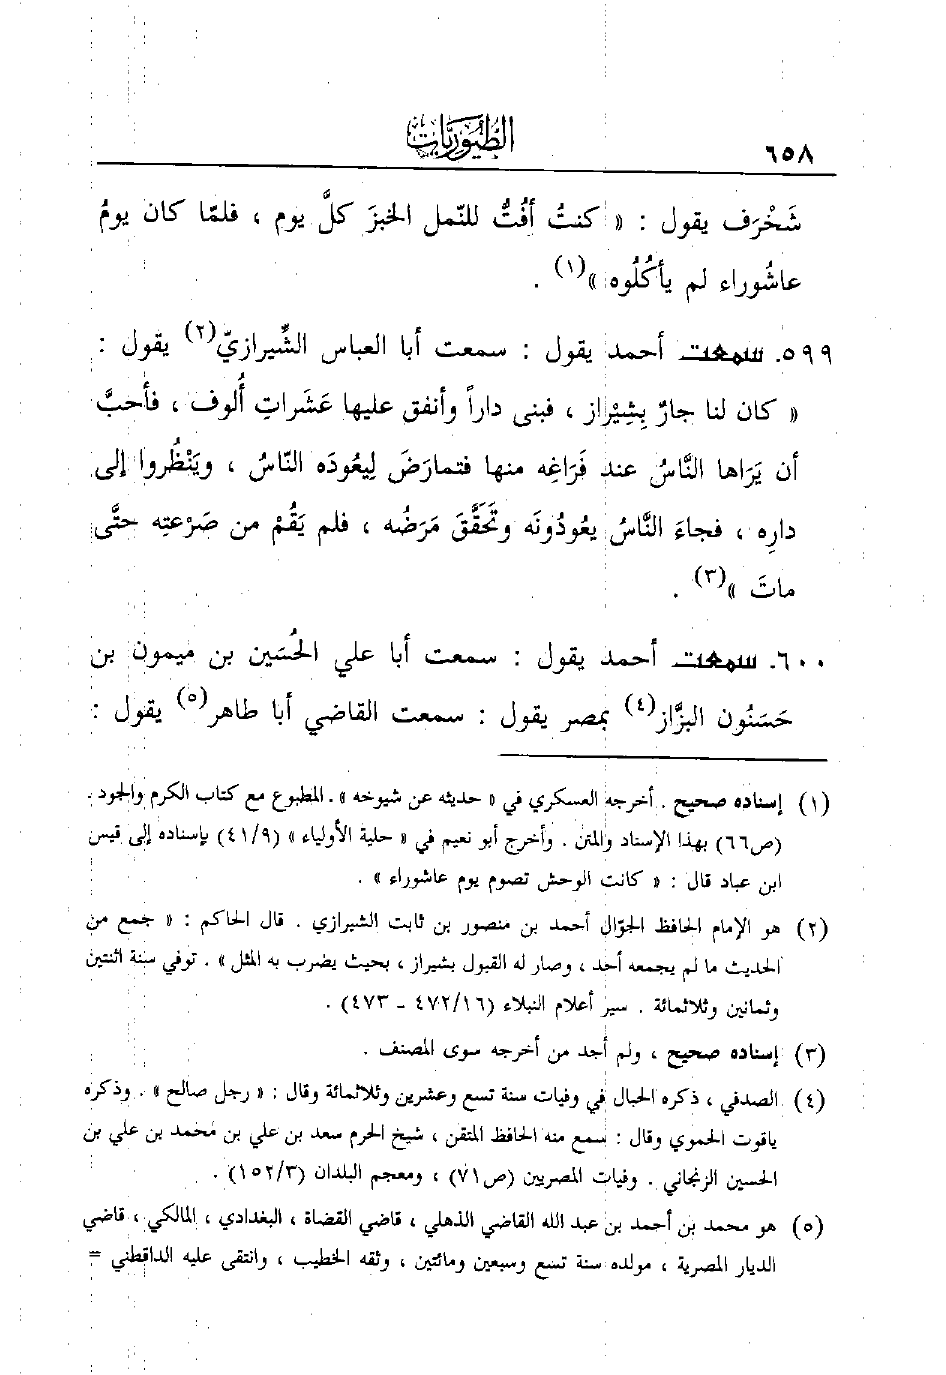 ٦٥٨
الطيوريات
شَخْرَف يقول : « كنتُ أفُتُّ للنّمل الخبزَ كلَّ يوم ، فلمّا كان يومُ
عاشُوراء لم يأكُلُوه »(١) .
٥٩٩. سمعت أحمد يقول : سمعت أبا العباس الشِّيرازيّ(٢) يقول :
« كان لنا جارٌ بِشِيْراز ، فبنى داراً وأنفق عليها عَشَراتِ أُلوف ، فأحبَّ
أن يَرَاها النَّاسُ عند فَرَاغِه منها فتمارَضَ لِيعُودَه النّاسُ ، ويَنْظُروا إلى
دارِه ، فجاءَ النَّاسُ يعُودُونَه وتَحَقَّقَ مَرَضُه ، فلم يَقُمْ من صَرْعتِه حتَّى
ماتَ »(٣) .
٦٠٠. سمعت أحمد يقول : سمعت أبا علي الحُسَين بن ميمون بن
حَسَنُون البزَّاز(٤) بمصر يقول : سمعت القاضي أبا طاهر(٥) يقول :
(١) إسناده صحيح . أخرجه العسكري في « حديثه عن شيوخه ». المطبوع مع كتاب الكرم والجود .
(ص٦٦) بهذا الإسناد والمتن . وأخرج أبو نعيم في « حلية الأولياء » (٤١/٩) بإسناده إلى قيس
ابن عباد قال : « كانت الوحش تصوم يوم عاشوراء » .
(٢) هو الإمام الحافظ الجوّال أحمد بن منصور بن ثابت الشيرازي . قال الحاكم : « جمع من
الحديث ما لم يجمعه أحد ، وصار له القبول بشيراز ، بحيث يضرب به المثل » . توفي سنة اثنتين
وثمانين وثلاثمائة . سير أعلام النبلاء (٤٧٢/١٦ - ٤٧٣) .
(٣) إسناده صحيح ، ولم أجد من أخرجه سوى المصنف .
(٤) الصدفي ، ذكره الحبال في وفيات سنة تسع وعشرين وثلاثمائة وقال : « رجل صالح » . وذكره
ياقوت الحموي وقال : سمع منه الحافظ المتقن ، شيخ الحرم سعد بن علي بن محمد بن علي بن
الحسين الزنجاني . وفيات المصريين (ص٧١) ، ومعجم البلدان (١٥٢/٣) .
(٥) هو محمد بن أحمد بن عبد الله القاضي الذهلي ، قاضي القضاة ، البغدادي ، المالكي ، قاضي
الديار المصرية ، مولده سنة تسع وسبعين ومائتين ، وثقه الخطيب ، وانتقى عليه الداقطني =